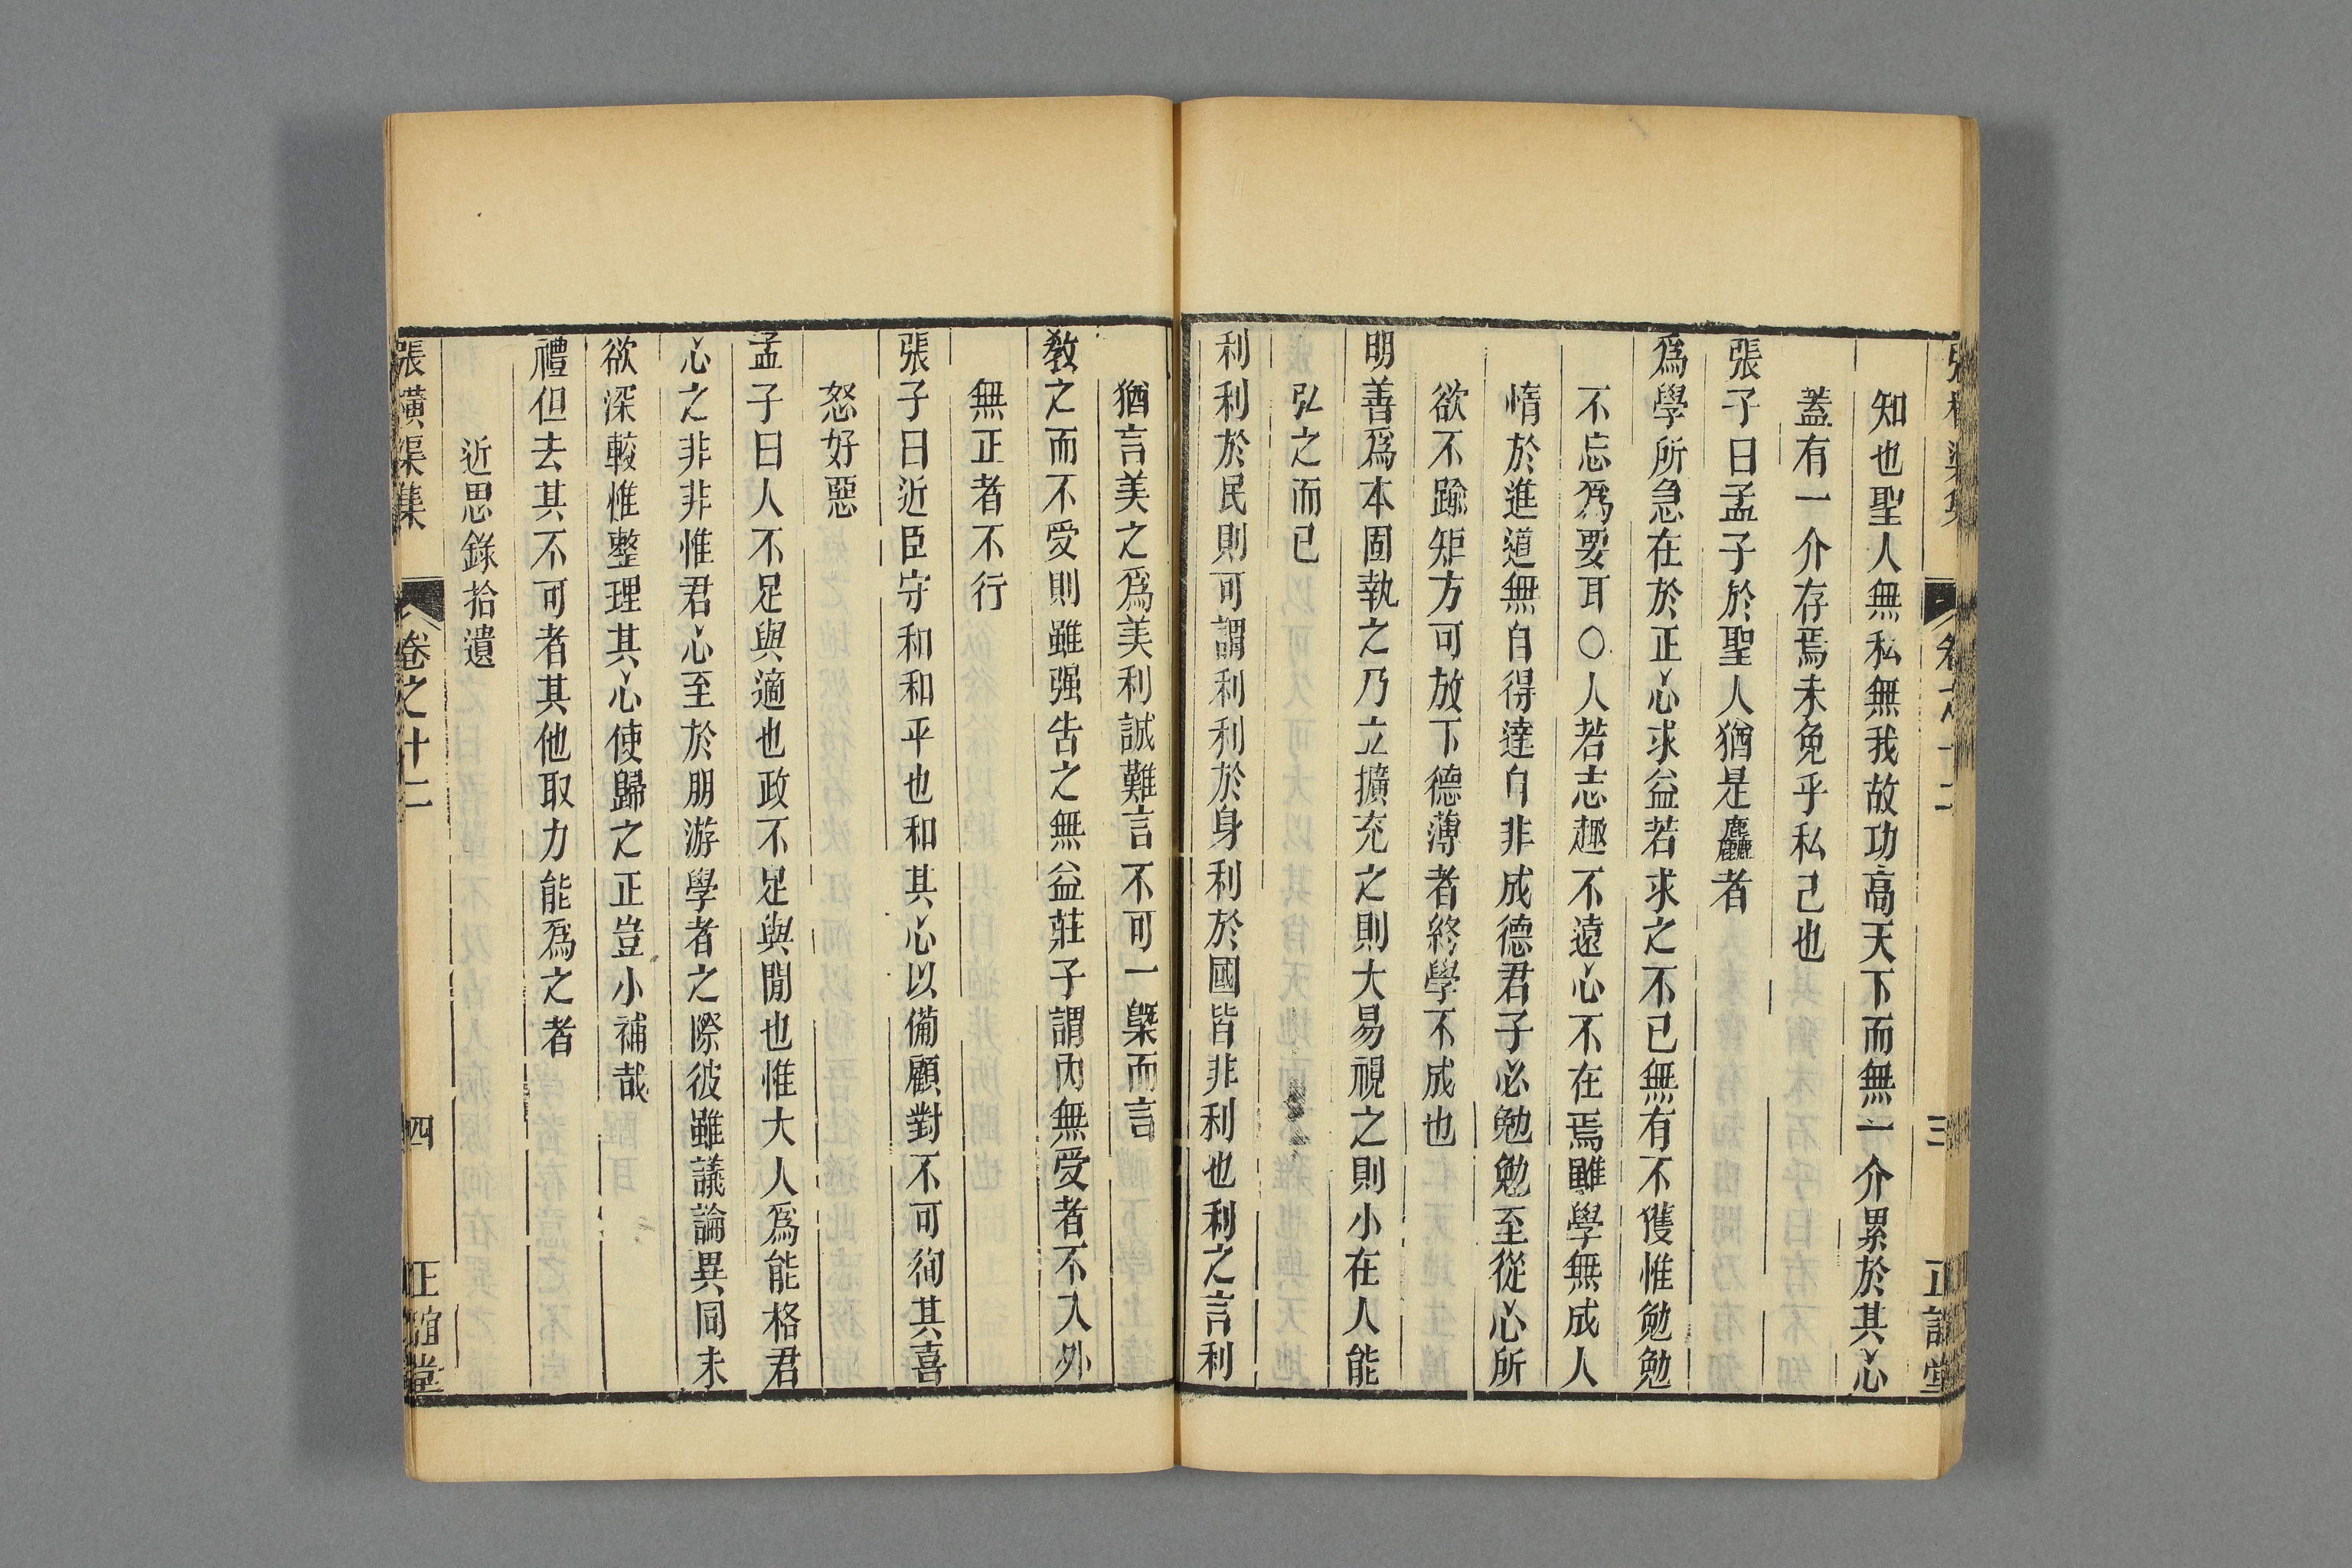 知也聖人無私無我故功高天下而無一介累於其心
蓋有一介存焉未免乎私己也
張子曰孟子於聖人猶是麤者
爲學所急在於正心求益若求之不已無有不獲惟勉勉
不忘爲要耳○人若志趣不遠心不在焉雖學無成人
惰於進道無自得達自非成德君子必勉勉至從心所
欲不踰矩方可放下德薄者終學不成也
明善爲本固執之乃立擴充之則大易視之則小在人能
弘之而已
利利於民則可謂利利於身利於國皆非利也利之言利
猶言美之爲美利誠難言不可一槩而言
敎之而不受則雖强告之無益莊子謂內無受者不入外
無正者不行
張子曰近臣守和和平也和其心以備顧對不可徇其喜
怒好惡
孟子曰人不足與適也政不足與閒也惟大人爲能格君
心之非非惟君心至於朋游學者之際彼雖議論異同未
欲深較惟整理其心使歸之正豈小補哉
禮但去其不可者其他取力能爲之者
近思錄拾遺
張橫渠集 卷之十二 四 正誼堂